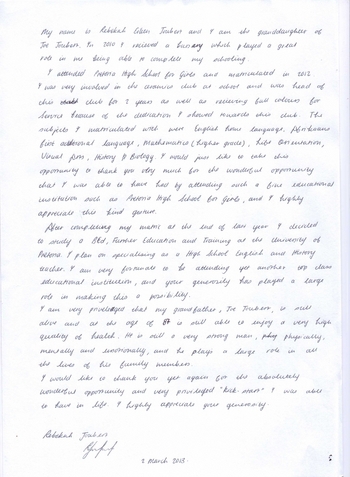 My name is Rebekah Eileen Joubert and I am the granddaughter of
Joe Joubert. In 2010 I received a bursary which played a great
role in me being able to complete my schooling.
I attended Pretoria High School for Girls and matriculated in 2012
I was very involved in the ceramics club at school and was head of
this club for 2 years as well as receiving full colours for
Service because of the dedication I showed towards this club. The
subjects I matriculated with were English home language, Afrikaans
first additional language, Mathematics (higher grade), Life Orientation,
Visual Arts, History & Biology. I would just like to take this
opportunity to thank you very much for the wonderful opportunity
that I was able to have had by attending such a fine educational
institution such as Pretoria High School for Girls, and I highly
appreciate this kind gesture.
After completing my matric at the end of last year I decided
to study a BEd, Further Education and Training at the University of
Pretoria. I plan on specialising as a High School English and History
teacher. I am very fortunate to be attending yet another top class
educational institution, and your generosity has played a large
role in making this a possibility.
I am very privileged that my grandfather, Joe Joubert, is still
alive and at the age of 87 is still able to enjoy a very high
quality of health. He is still a very strong man, physically,
mentally and emotionally, and he plays a large role in all
the lives of his family members.
I would like to thank you yet again for the absolutely
wonderful opportunity and very privileged "kick-start" I was able
to have in life. I highly appreciate your generosity.
Rebekah Joubert
2 March 2013.